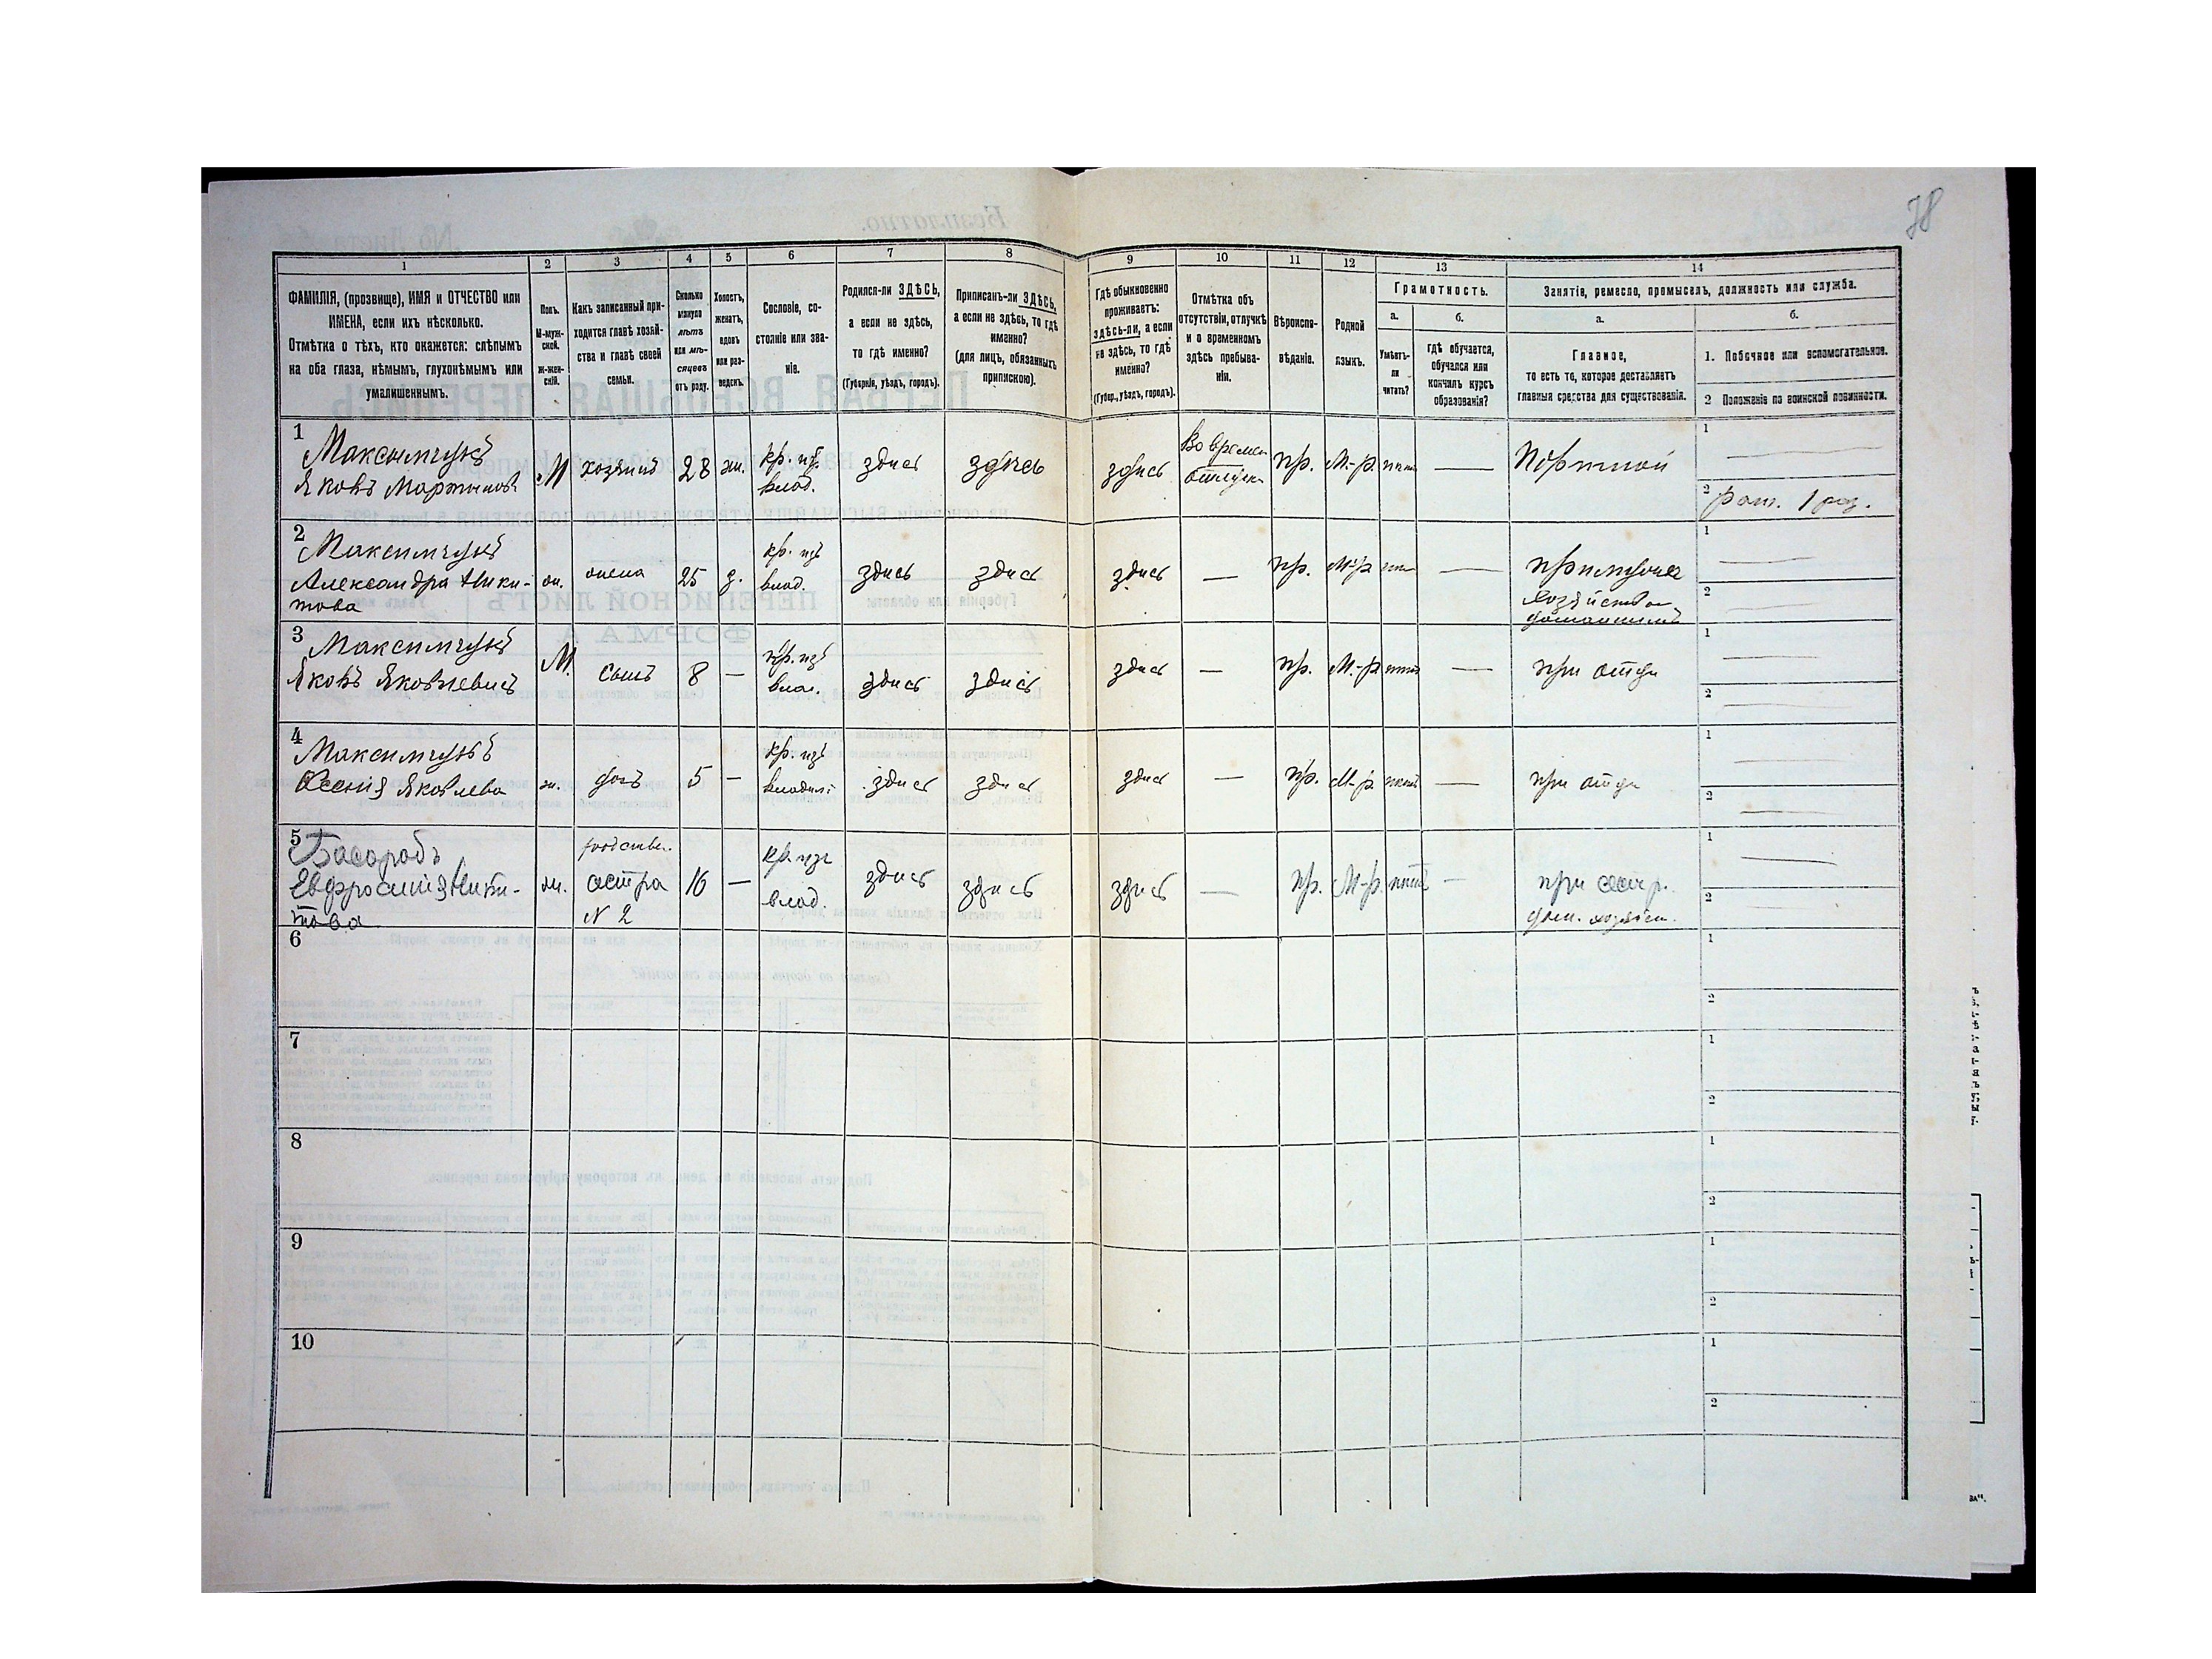 78
1 2 3 4 5 6 7 8 9 10 11 12 13 14
ФАМИЛІЯ, (прозвище), ИМЯ и ОТЧЕСТВО или
ИМЕНА, если ихъ нѣсколько.
Отмѣтка о тѣхъ, кто окажется: слѣпымъ
на оба глаза, нѣмымъ, глухонѣмымъ или
умалишеннымъ.
Полъ.
М-муж-
ской.
Ж-жен-
скій.
Какъ записанный при-
ходится главѣ хозяй-
ства и главѣ своей
семьи.
Сколько
минуло
лѣтъ
или мѣ-
сяцевъ
отъ роду.
Холостъ,
женатъ,
вдовъ
или раз-
веденъ.
Сословіе, со-
стояніе или зва-
ніе.
Родился-ли ЗДѢСЬ,
а если не здѣсь,
то гдѣ именно?
(Губернія, уѣздъ, городъ).
Приписанъ-ли ЗДѢСЬ,
а если не здѣсь, то гдѣ
именно?
(для лицъ, обязанныхъ
припискою).
Гдѣ обыкновенно
проживаетъ:
здѣсь-ли, а если
не здѣсь, то гдѣ
именно?
(Губер., уѣздъ, городъ).
Отмѣтка объ
отсутствіи, отлучкѣ
и о временномъ
здѣсь пребыва-
ніи.
Вѣроиспо-
вѣданіе.
Родной
языкъ.
Грамотность.
а.
Умѣетъ-
ли
читать?
б.
гдѣ обучается,
обучался или
кончилъ курсъ
образованія?
Занятіе, ремесло, промыселъ, должность или служба.
а.
Главное,
то есть то, которое доставляетъ
главныя средства для существованія.
б.
1. Побочное или вспомогательное.
2 Положеніе по воинской повинности.
1 Максимчукъ
Яковъ Мартыновъ М хозяинъ 28 жн. кр. изъ влад. здѣсь здѣсь здѣсь Во времен. отлучкѣ пр. М-р. нѣтъ — Портной 1 — 2 рат. 1 раз.
2 Максимчукъ
Александра Ники-
това жн. жена 25 з. кр. изъ влад. здѣсь здѣсь здѣсь — пр. М-р — 1 — 2 —
3 Максимчукъ
Яковъ Яковлевичъ М. сынъ 8 — кр. изъ влад. здѣсь здѣсь здѣсь — пр. М-р нѣтъ — при отцѣ 1 — 2 —
4 Максимчукъ
Ксенія Яковлева ж. дочь 5 — кр. изъ здѣсь здѣсь здѣсь — пр. М-р нѣтъ — при отцѣ 1 — 2 —
5
Евфросинія Ники-
това родствен. сестра N 2 16 — кр. изъ влад. здѣсь здѣсь здѣсь — пр. М-р. нѣтъ — при сестр. дом. хозяйст. 1 — 2 —
6 1
2
7 1
2
8 1
2
9 1
2
10 1
2